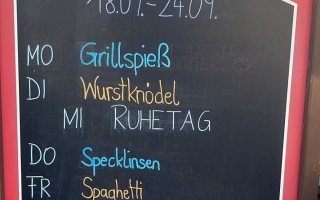 18.09.-24.09.
MO Grillspieß
DI Wurstknödel
MI RUHETAG
DO Specklinsen
FR Spaghetti